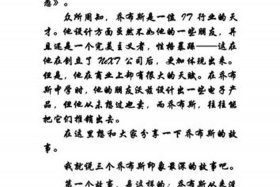 想》。
众所周知，乔布斯是一位 IT 行业的天
才。他设计方面虽然不如他的一些朋友，并
且还是一个完美主义者，性格暴躁——这在
他在创立了 NeXT 公司后，更加体现出来。
但是，他在商业上却有很大的天赋。在乔布
斯中学时，他的朋友沃兹设计出一些电子产
品，但他从未想过也卖，而乔布斯，往往能
把它们推销出去。
在这里想和大家分享一下乔布斯的故
事。
我就说三个乔布斯印象最深的故事吧。
第一个故事，是这样的：乔布斯从来